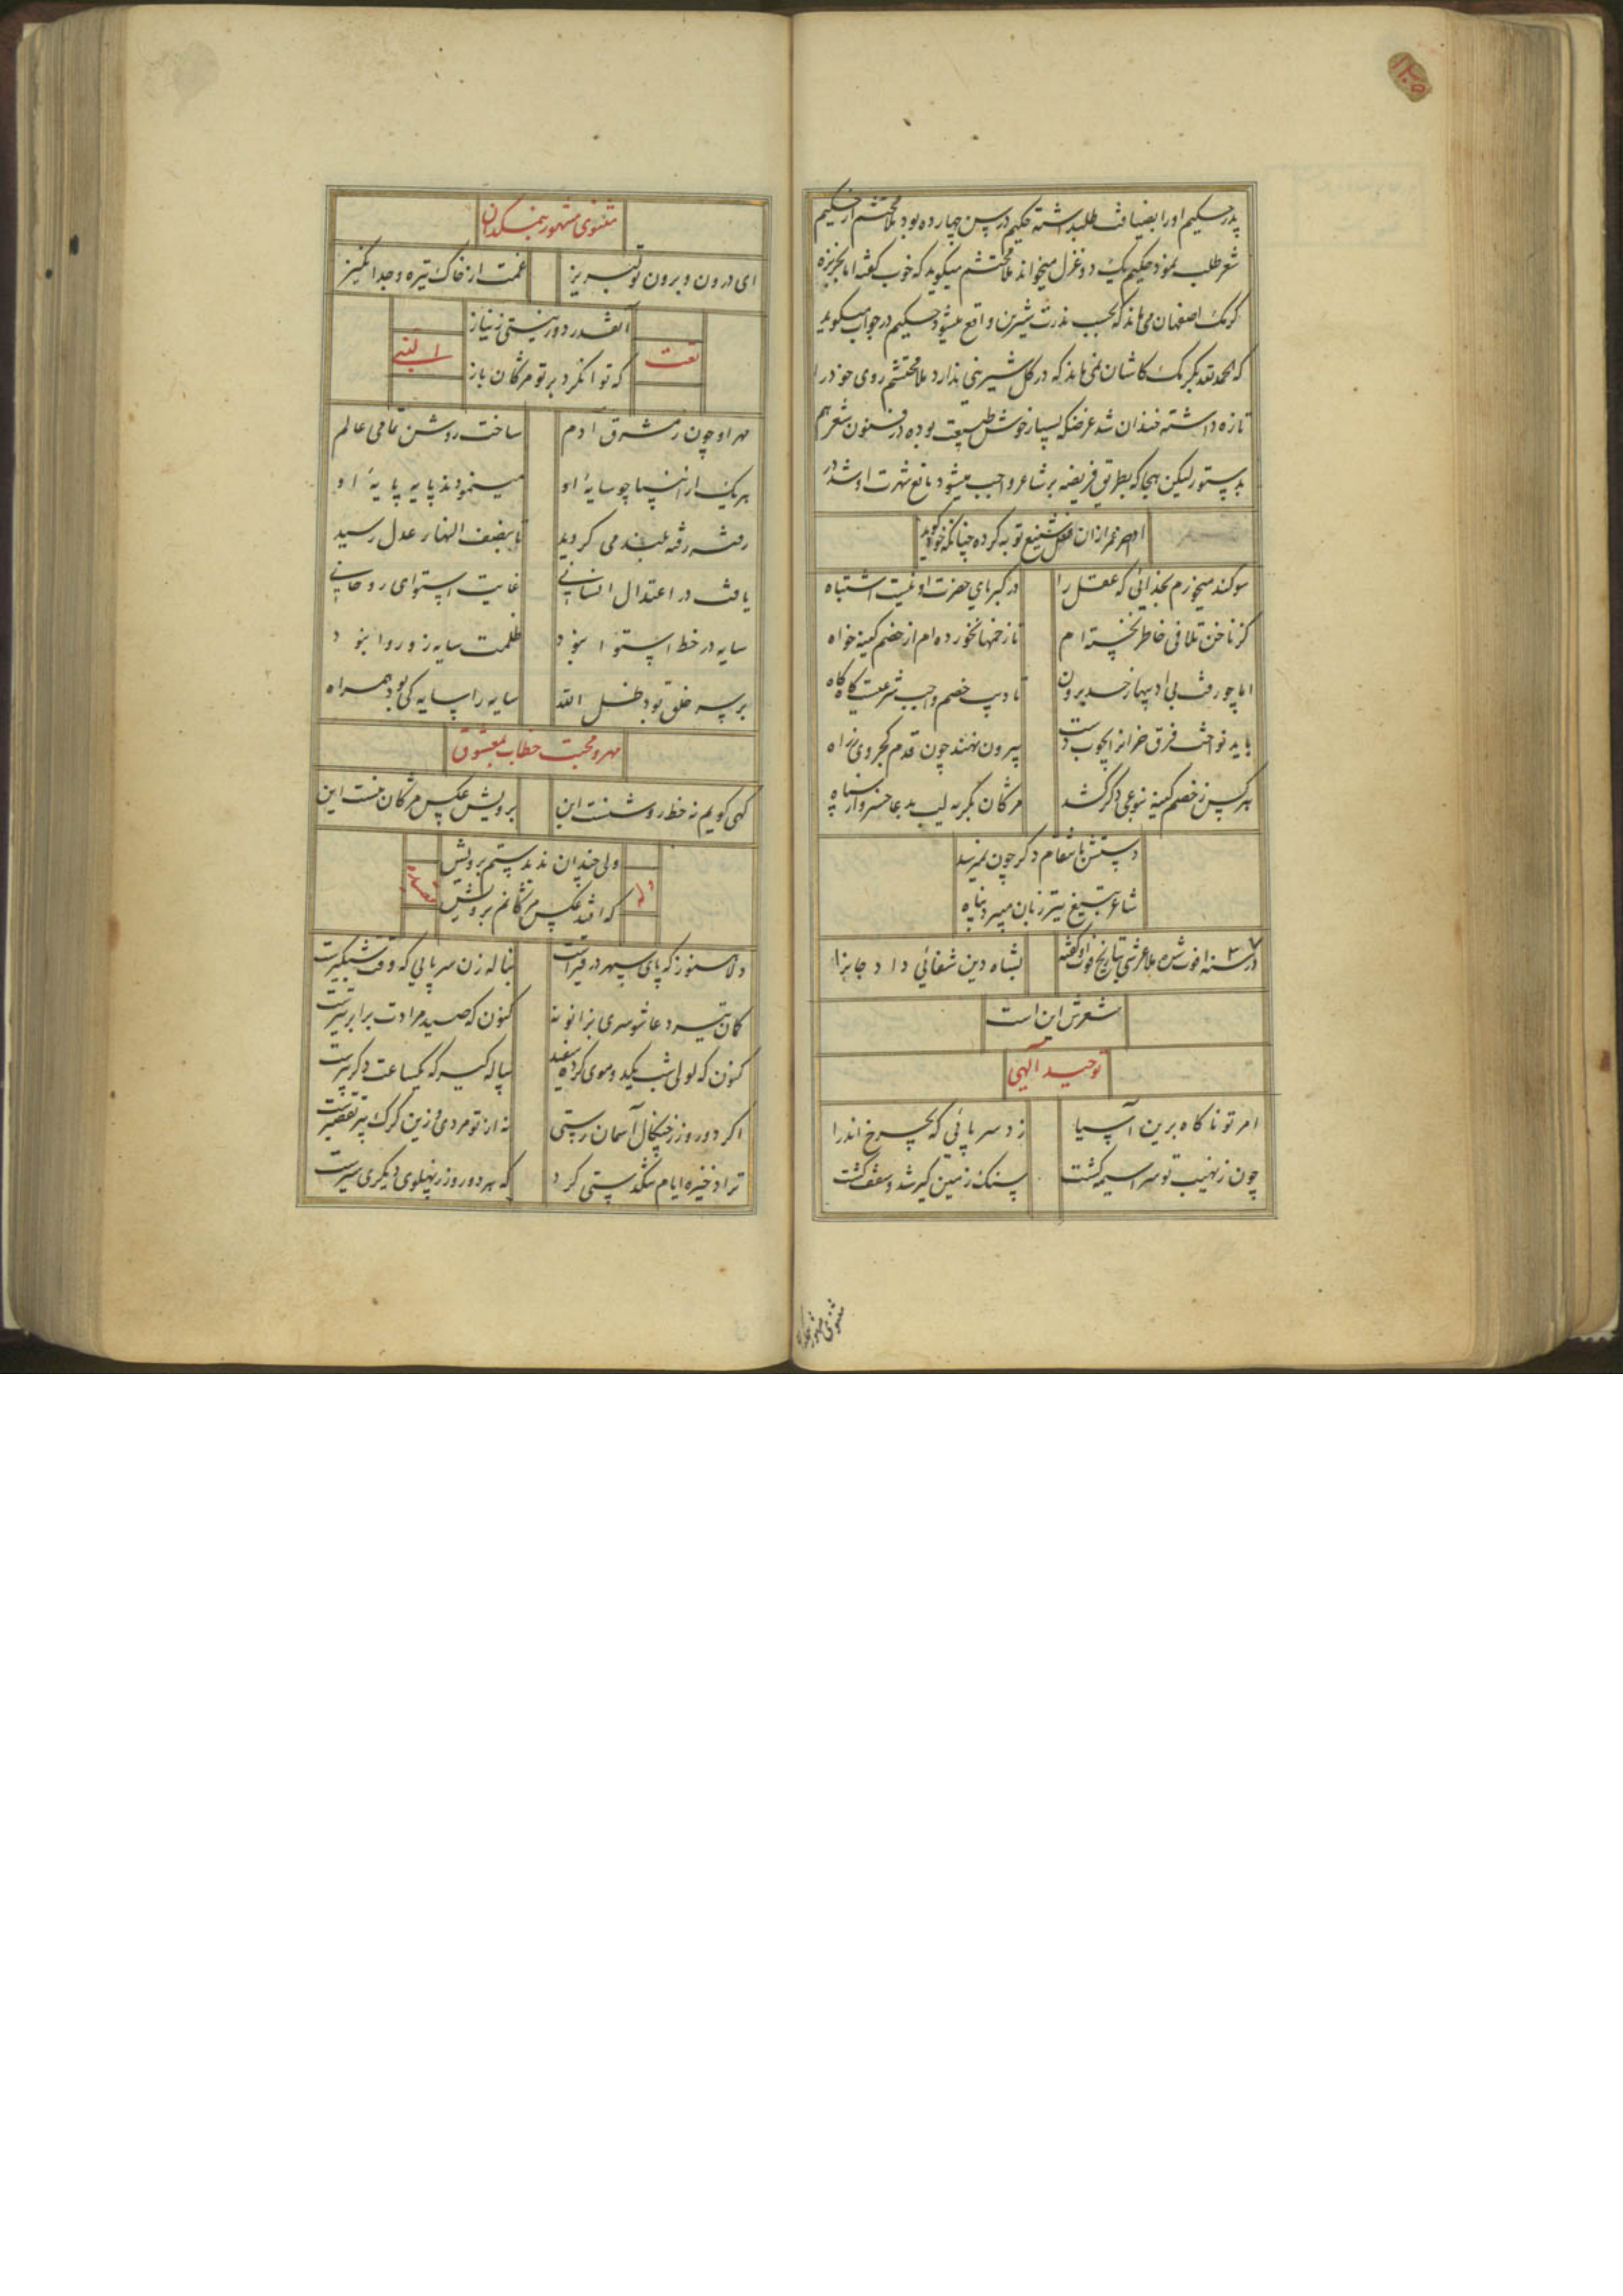 پدر حکیم او را بضیافت طلبداشته حکیم در سن چهارده بود ملا محتشم از حکیم
شعر طلب نمود حکیم یک دو غزل میخواند ملا محتشم میکوید که خوب کفته اما بخربزه
کرمک اصفهان می ماند که بحسب ندرت شیرین واقع میشود حکیم در جواب میکوید
که الحمدلله بکرمک کاشان نمی ماند که در کل شیرینی ندارد ملا محتشم روی خود را
تازه داشته خندان شد غرضکه بسیار خوش طبیعت بوده در فنون شعر هم
بدستور لیکن هجا که بطریق فریضه بر شاعر واجب میشود مانع شهرت او شد در
اواخر عمر از ان فعل شنیع توبه کرده چنانکه خود کوید
سوکند میخورم بخدائی که عقل را در کبریای حضرت او نیست اشتباه
کز ناخن تلافی خاطر نخسته ام تا زخمها نخورده ام از خصم کینه خواه
اما چو رفت بی ادبیها ز حد برون تادیب خصم واجب شرعیست کاه کاه
باید نواخت فرق خرانرا بچوب دست بیرون نهند چون قدم کجروی ز راه
هر کس ز خصم کینه بنوعی دکر کشد مژکان بکریه لب بدعا خسرو از سپاه
دستش بانتقام دکر چون نمیرسد
شاعر بتیغ تیز زبان میبرد پناه
در سنه ۱۰۳۷ فوت شده ملا عرشی تاریخ فوت او کفته بشاه دین شفائی داد جانرا
شعرش این است
توحید آلهی
امر تو ناکاه برین آسیا زد سر پائی که بچرخ اندرا
چون ز نهیب تو سراسیمه کشت سنک زمین کیر شد و سقف کشت
مثنوی مشهور
مثنوی مشهور بنمکدان
ای درون و برون ز تو لبریز غمت از خاک تیره وجد انکیز
آنقدر دور نیستی ز نیاز
که توانکرد بر تو مژکان باز
نعت النبی
مهر او چون ز مشرق آدم ساخت روشن تمامی عالم
هر یک از انبیا چو سایهٔ او مینمودند پایه پایهٔ او
رفته رفته بلند می کردید تا بنصف النهار عدل رسید
یافت در اعتدال انسانی غایت استوای روحانی
سایه در خط استوا نبود ظلمت سایه زو روا نبود
بر سر خلق بود ظل الله سایه را سایه کی بود همراه
مهر و محبت خطاب بمعشوق
کهی کویم نه خط روشنست این برویش عکس مژکان منست این
ولی چندان ندیدستم برویش
که افتد عکس مژکانم برویش
وله قصیده
دلا هنوز که پای سپهر در قیرست بناله زن سر پایی که وقت شبکیرست
کمان تیر دعا شو سری بزانو نه کنون که صید مرادت برابر تیرست
کنون که لولی شب کید و موی کرده سفید پیاله کیر که یکساعت دکر پیرست
اکر دو روز ز چنکال آسمان رستی نه از تو مردی و زین کرک پیر تقصیرست
ترا ذخیره ایام تنکدستی کرد که هر دو روز ز پهلوی دیکری سیرست